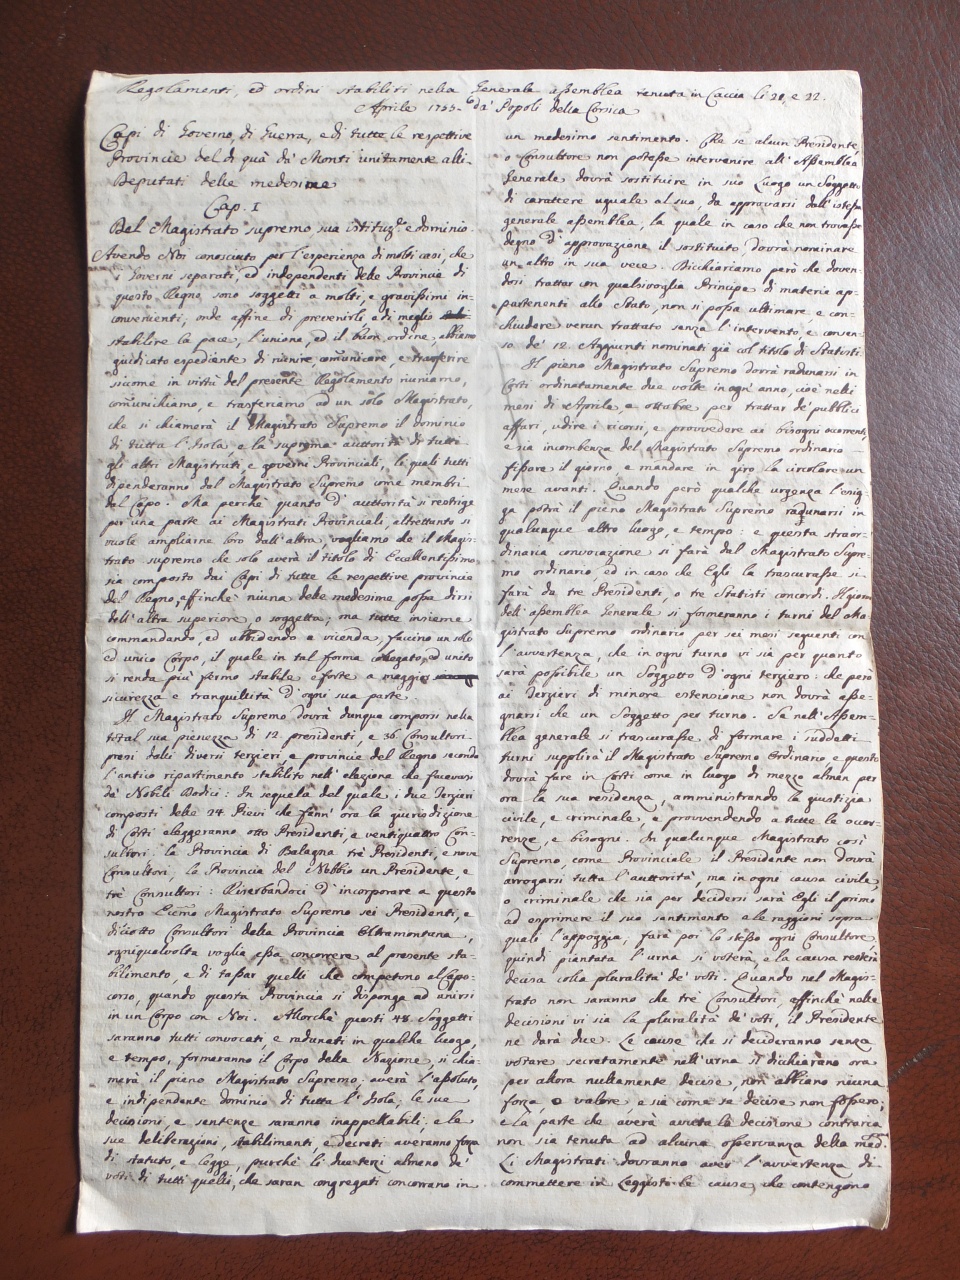 Regolamenti, ed ordini stabiliti nella Generale assemblea tenuta in Caccia li 20, e 22.
Aprile 1755 da' Popoli della Corsica
Capi di Governo, di Guerra, e di tutte le respettive
Provincie del di quà da' Monti unitamente alli
Deputati delle medesime
Cap. I
Del Magistrato supremo sua istituz.e e dominio
Avendo Noi conosciuto per l'esperienza di molti casi, che
i Governi separati, ed independenti delle Provincie di
questo Regno, sono soggetti a molti, e gravissimi in-
convenienti, onde affine di prevenirli, e di meglio
stabilire la pace, l'unione, ed il buon ordine, abbiamo
giudicato espediente di riunire comunicare, e trasferire
sicome in virtù del presente Regolamento riuniamo,
comunichiamo, e trasferiamo ad un solo Magistrato,
che si chiamerà il Magistrato Supremo il dominio
di tutta l'Isola, e la suprema autorità di tutti
gli altri Magistrati, e governi Provinciali, li quali tutti
dipenderanno dal Magistrato Supremo come membri
dal Capo. Ma perchè quanto d'autorità si restrige
per una parte ai Magistrati Provinciali, altrettanto si
vuole ampliarne loro dall'altra, vogliamo che il Magis-
trato supremo che solo averà il titolo di Eccellentissimo
sia composto dai Capi di tutte le respettive provincie
del Regno, affinchè niuna delle medesime possa dirsi
dell'altra superiore, o soggetta; ma tutte insieme
commandando, ed ubbidendo a vicenda, faccino un solo
ed unico Corpo, il quale in tal forma collegato, ed unito
si renda più fermo stabile e forte a maggior
sicurezza e tranquillità d'ogni sua parte.
Il Magistrato Supremo dovrà dunque comporsi nella
total sua pienezza di 12 presidenti, e 36 Consultori
presi dalli diversi terzieri, e provincie del Regno secondo
l'antico ripartimento stabilito nell'elezione che facevasi
da' Nobili Dodici: In sequela del quale i due Terzieri
composti delle 24 Pievi che fann' ora la giurisdizione
di Corti eleggeranno otto Presidenti, e ventiquattro Con-
sultori. la Provincia di Balagna trè Presidenti, e nove
Consultori, la Provincia del Nebbio un Presidente, e
trè Consultori: Riserbandoci d'incorporare a questo
nostro Ecc.mo Magistrato Supremo sei Presidenti, e
diciotto Consultori della Provincia Oltramontana,
ogniqualvolta voglia essa concorrere al presente sta-
bilimento, e di tassar quelli che competono al Capo-
corso, quando questa Provincia si disponga ad unirsi
in un Corpo con Noi. Allorchè questi 48. Soggetti
saranno tutti convocati, e radunati in qualche luogo,
e tempo, formeranno il Corpo della Nazione, si chia-
merà il pieno Magistrato Supremo; averà l'assoluto,
e indipendente dominio di tutta l'Isola; le sue
decisioni, e sentenze saranno inappellabili, e le
sue deliberazioni, stabilimenti e decreti averanno forza
di statuto, e legge, purchè li due terzi almeno de'
voti di tutti quelli, che saran congregati concorrano in
un medesimo sentimento. Che se alcun Presidente,
o Consultore non potesse intervenire all'Assemblea
Generale dovrà sostituire in suo Luogo un Soggetto
di carattere uguale al suo, da approvarsi dall'istessa
generale assemblea, la quale in caso che non trovasse
degno d'approvazione il sostituito, dovrà nominare
un altro in sua vece. Dichiariamo però che doven-
dosi trattar con qualsivoglia Principe di materie ap-
partenenti allo Stato, non si possa ultimare, e con-
chiudere verun trattato senza l'intervento, e consen-
so de' 12 Aggiunti nominati già col titolo di Statisti
Il pieno Magistrato Supremo dovrà radunarsi in
Corti ordinatamente due volte in ogn'anno, cioè nelli
mesi di Aprile, e ottobre per trattar de' pubblici
affari, udire i ricorsi, e provvedere ai bisogni occorrenti,
e sia incombenza del Magistrato Supremo ordinario
fissare il giorno, e mandare in giro la circolare un
mese avanti. Quando però qualche urgenza l'esig-
ga potrà il pieno Magistrato Supremo radunarsi in
qualunque altro luogo, e tempo: e questa straor-
dinaria convocazione si farà dal Magistrato Supre-
mo ordinario, ed in caso che Egli la trascurasse si
farà da tre Presidenti, o tre Statisti concordi. Il giorno
dell'assemblea Generale si formeranno i turni del Ma
gistrato Supremo ordinario per sei mesi seguenti con
l'avvertenza, che in ogni turno vi sia per quanto
sarà possibile un Soggetto d'ogni terziero: che però
ai Terzieri di minore estensione non dovrà asse-
gnarsi che un Soggetto per turno. Se nell'Assem-
blea generale si trascurasse di formare i suddetti
turni supplirà il Magistrato Supremo Ordinario e questo
dovrà fare in Corti come in luogo di mezzo almen per
ora la sua residenza, amministrando la giustizia
civile, e criminale, e provvendendo a tutte le occor-
renze, e bisogni. In qualunque Magistrato così
Supremo, come Provinciale il Presidente non dovrà
arrogarsi tutta l'autorità, ma in ogni causa civile,
o criminale che sia per decidersi sarà Egli il primo
ad esprimere il suo sentimento e le raggioni sopra
quali l'appoggia, farà poi lo stesso ogni Consultore,
quindi piantata l'urna si voterà, e la causa resterà
decisa colla pluralità de' voti. Quando nel Magis-
trato non saranno che trè Consultori, affinchè nelle
decisioni vi sia la pluralità de' voti, il Presidente
ne darà due. Le cause che si decideranno senza
votare secretamente nell'urna si dichiarano ora
per allora nullamente decise, non abbiano niuna
forza, o valore, e sia come se decise non fossero;
e la parte che averà avuta la decisione contraria
non sia tenuta ad alcuna osservanza della med.a
Li Magistrati dovranno aver l'avvertenza di
commettere in Leggisti le cause, che contengono